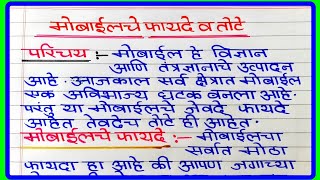 मोबाईलचे फायदे व तोटे
परिचय :- मोबाईल हे विज्ञान
आणि तंत्रज्ञानाचे उत्पादन
आहे. आजकाल सर्व क्षेत्रात मोबाईल
एक अविभाज्य घटक बनला आहे.
परंतु या मोबाईलचे जेवढे फायदे
आहेत तेवढेच तोटे ही आहेत.
मोबाईलचे फायदे :- मोबाईलचा
सर्वात मोठा
फायदा हा आहे की आपण जगाच्या